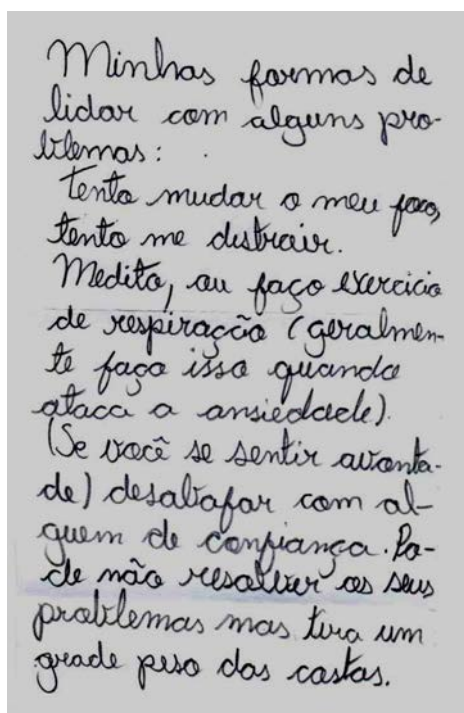 Minhas formas de
lidar com alguns pro-
blemas:
Tento mudar o meu foco,
tento me distrair.
Medito, ou faço exercicio
de respiração (geralmen-
te faço isso quando
ataca a ansiedade).
(Se você se sentir avonta-
de) desabafar com al-
guem de confiança. Po-
de não resolver os seus
problemas mas tira um
grade peso das costas.